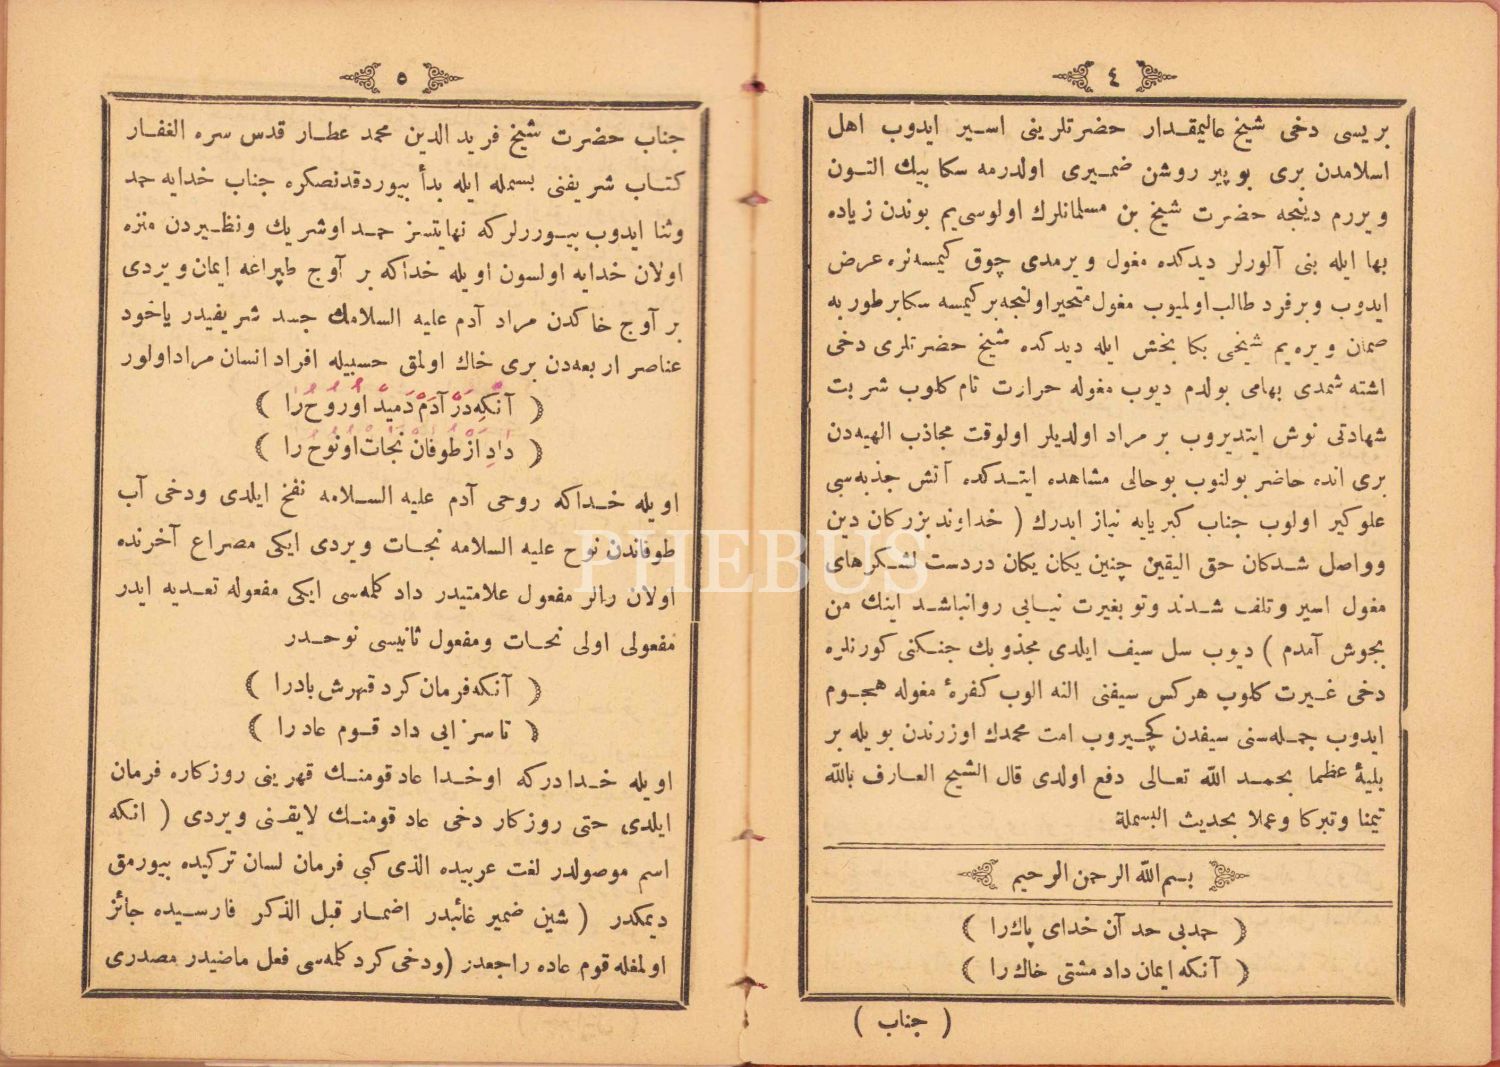 ٤
بریسی دخی شیخ عالیمقدار حضرتلرینی اسیر ایدوب اهل
اسلامدن بری بو پیر روشن ضمیری اولدرمه سكا بیك التون
ویررم دینجه حضرت شیخ بن مسلمانلرك اولوسی یم بوندن زیاده
بها ایله بنی آلورلر دیدكده مغول ویرمدی چوق كیمسه‌نره عرض
ایدوب وبرفرد طالب اولمیوب مغول متحیر اولنجه بر كیمسه سكا بر طوربه
صمان ویره یم شیخی بكا بخش ایله دیدكده شیخ حضرتلری دخی
اشته شمدی بهامی بولدم دیوب مغوله حرارت تام كلوب شربت
شهادتی نوش ایتدیروب بر مراد اولدیلر اولوقت مجاذب الهیه‌دن
بری انده حاضر بولنوب بوحالی مشاهده ایتدكده آتش جذبه‌سی
علوكیر اولوب جناب كبریایه نیاز ایدرك ( خداوند بزركان دین
وواصل شدكان حق الیقین چنین یكان یكان دردست لشكرهای
مغول اسیر وتلف شدند وتو بغیرت نیایی روانباشد اینك من
بجوش آمدم ) دیوب سل سیف ایلدی مجذوبك جنكنی كورنلره
دخی غیرت كلوب هركس سیفنی النه الوب كفرهٔ مغوله هجوم
ایدوب جمله‌سنی سیفدن كچیروب امت محمدك اوزرندن بویله بر
بلیهٔ عظما بحمد الله تعالی دفع اولدی قال الشیخ العارف بالله
تیمنا وتبركا وعملا بحدیث البسملة
بسم الله الرحمن الرحیم
( حمد بی حد آن خدای پاك را )
( آنكه ایمان داد مشتی خاك را )
( جناب )
٥
جناب حضرت شیخ فرید الدین محمد عطار قدس سره الغفار
كتاب شریفنی بسمله ایله بدأ بیوردقدنصكره جناب خدایه حمد
وثنا ایدوب بیوررلركه نهایتسز حمد اوشریك ونظیردن منزه
اولان خدایه اولسون اویله خداكه بر آوج طپراغه ایمان ویردی
بر آوج خاكدن مراد آدم علیه السلامك جسد شریفیدر یاخود
عناصر اربعه‌دن بری خاك اولمق حسبیله افراد انسان مراد اولور
( آنْكِه دَرْ آدَمْ دَمید اُو رُوحْ را )
( دادِ اَزْ طُوفانْ نَجَاتْ اُو نُوحْ را )
اویله خداكه روحی آدم علیه السلامه نفخ ایلدی ودخی آب
طوفاندن نوح علیه السلامه نجات ویردی ایكی مصراع آخرنده
اولان رالر مفعول علامتیدر داد كلمه‌سی ایكی مفعوله تعدیه ایدر
مفعولی اولی نجات ومفعول ثانیسی نوحدر
( آنكه فرمان كرد قهرش باد را )
( تا سزایی داد قوم عاد را )
اویله خدادركه اوخدا عاد قومنك قهرینی روزكاره فرمان
ایلدی حتی روزكار دخی عاد قومنك لایقنی ویردی ( انكه
اسم موصولدر لغت عربیده الذی كبی فرمان لسان تركیده بیورمق
دیمكدر ( شین ضمیر غائبدر اضمار قبل الذكر فارسیده جائز
اولمغله قوم عاده راجعدر ( ودخی كرد كلمه‌سی فعل ماضیدر مصدری
PHEBUS